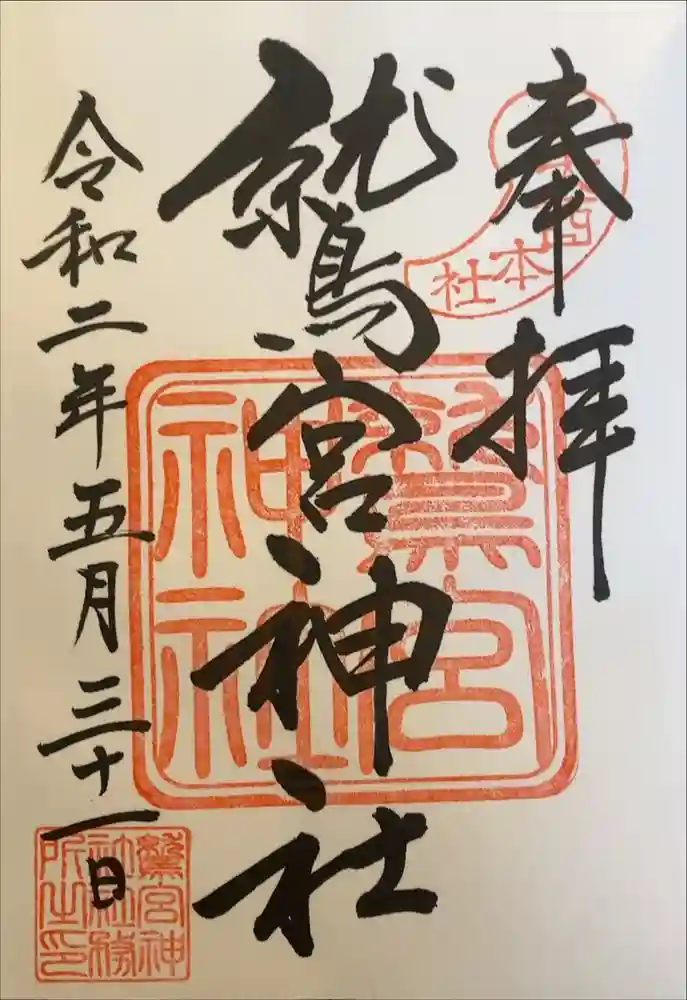 奉拝
鷲宮神社
令和二年五月三十一日
本社
鷲宮神社
鷲宮神社社務所之印